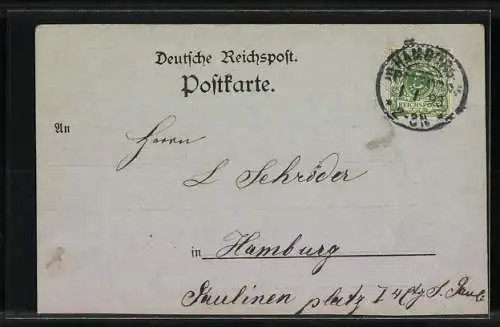 Deutsche Reichspost.
Postkarte.
HAMBURG
REICHSPOST
An
Herrn
L Schröder
in Hamburg
Paulinen platz I 4 Etg S. Pauli